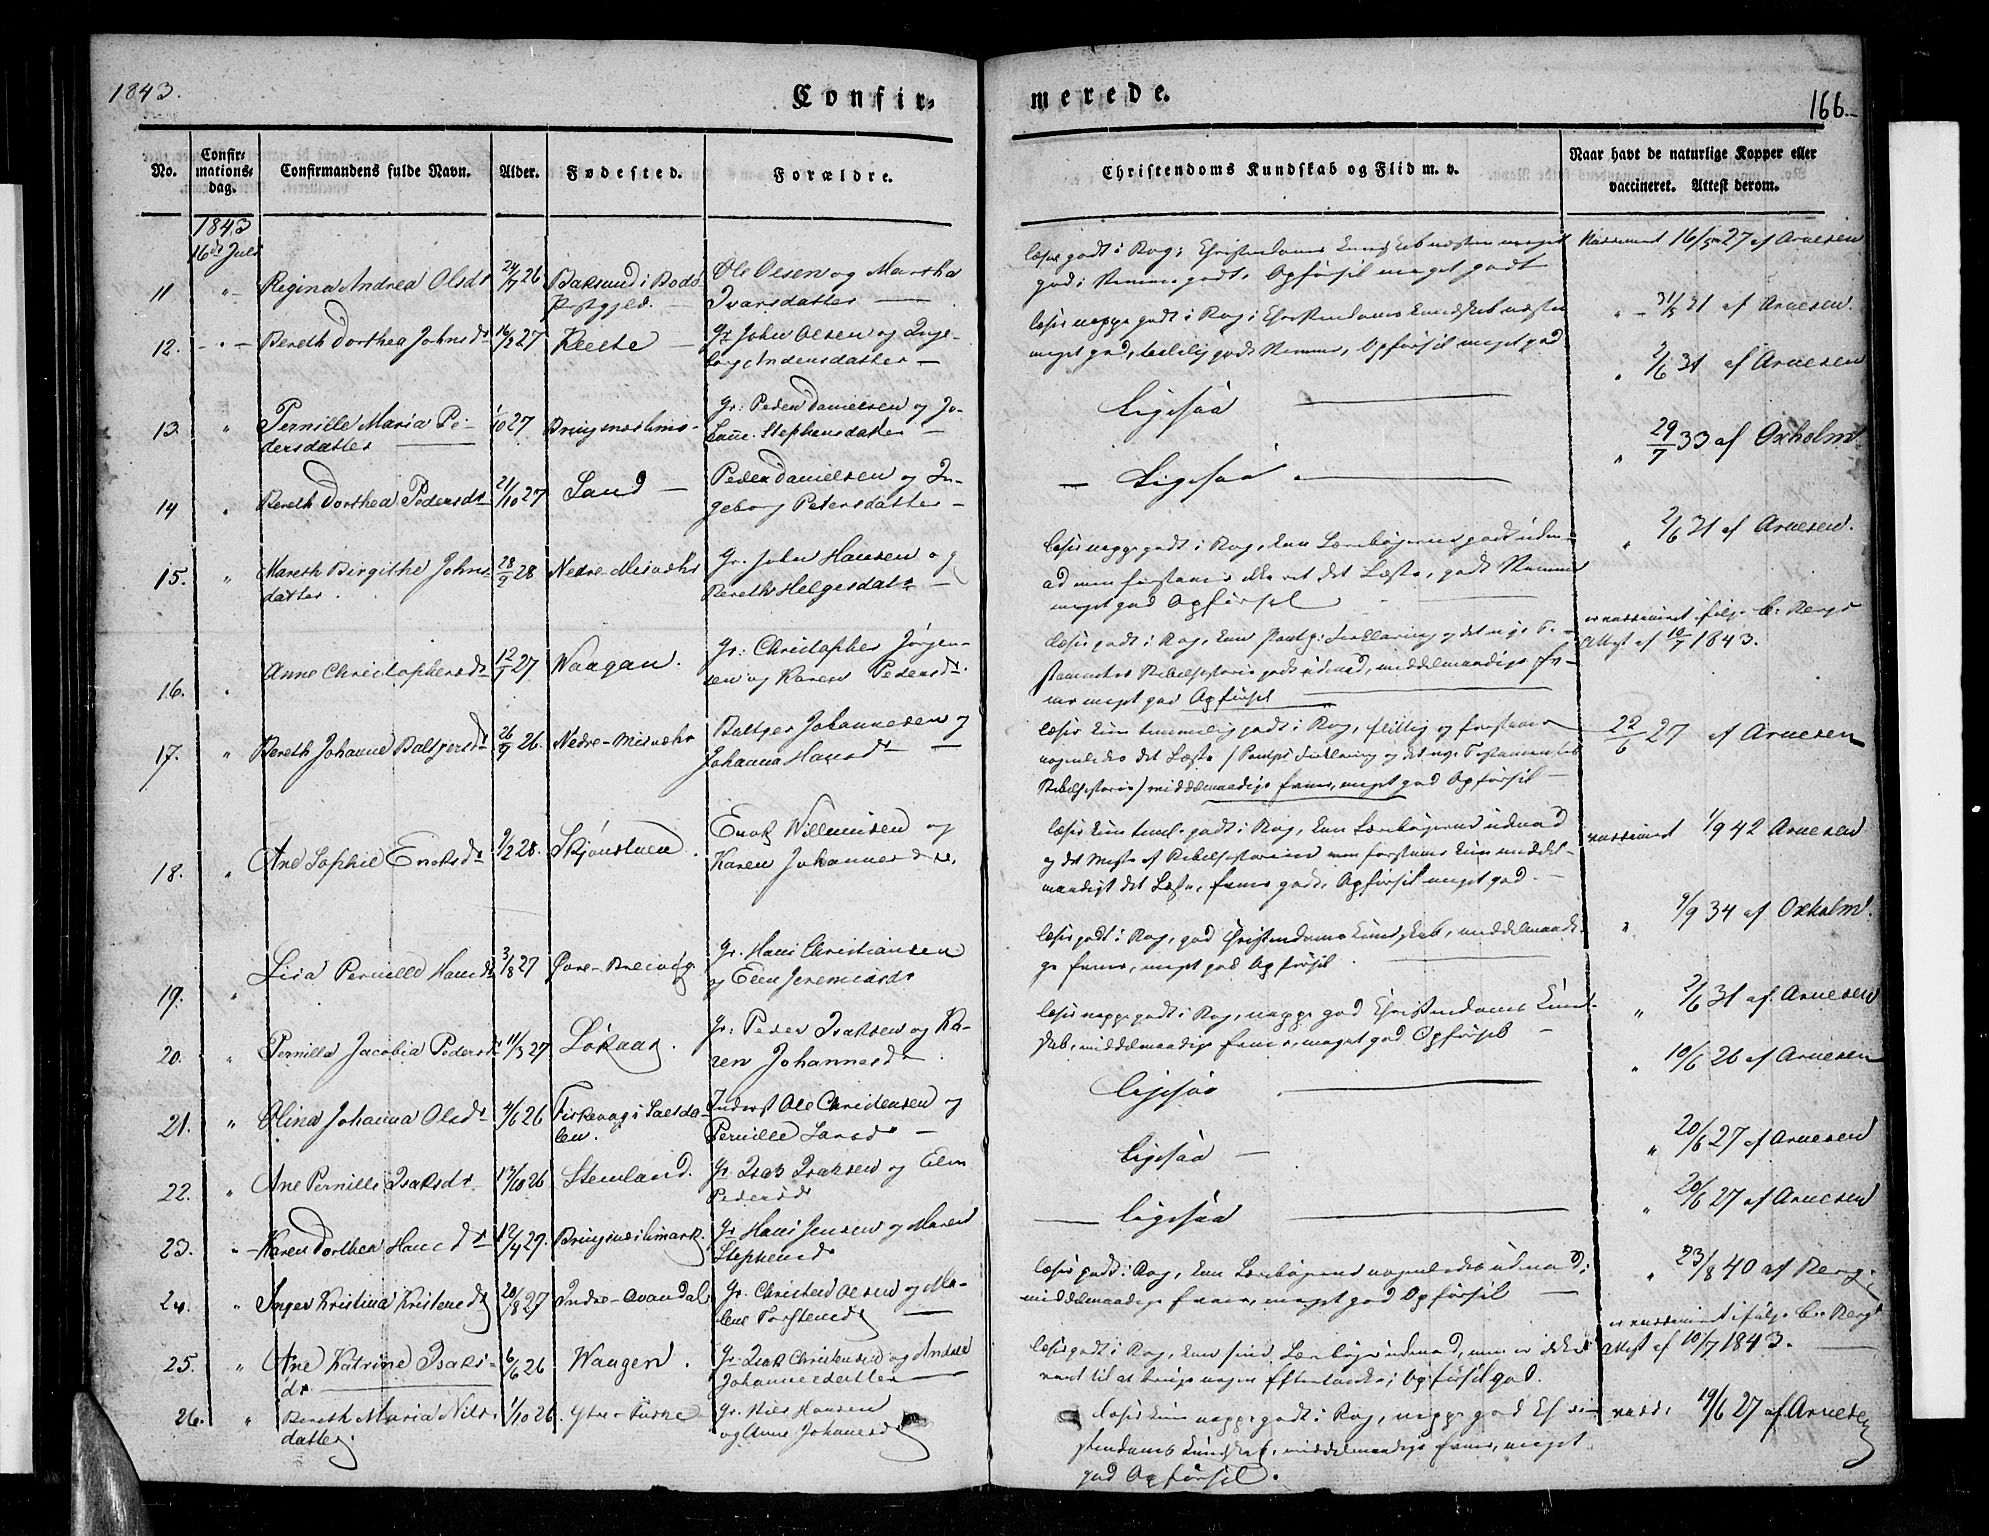 1843.
Confir-
merede.
166
No.
Confir-
mations-
dag.
Confirmandens fulde Navn.
Alder.
Fødested.
Forældre.
Christendoms Kundskab og Flid m. v.
Naar havt de naturlige Kopper eller
vaccineret. Attest derom.
1843
16de Juli
11 " Regina Andrea Olsdr 24/7 26 i Bodø
Præstgjeld.
Ole Olsen og Martha
Ivarsdatter
læser godt i Bog, Christendoms Kundskab næsten meget
god, Stemme godt, Opførsel meget godt
Vaccineret 16/5 27 af Arnesen
12. Bereth Dorthea Johnsdr 16/2 27
Gr John Olsen og Inge-
borg Andersdatter
læser neppe godt i Bog, Christendoms Kundskab næsten
meget god, Stemme, Opførsel meget god
" 31/5 31 af Arnesen.
13. " Pernille Maria Pe-
dersdatter
1/10 27
Gr: Peder Danielsen og
Stephensdatter
Ligesaa
" 2/6 31 af Arnesen
14 " Bereth Dorthea Pedersdr 21/10 27 Sand
Peder Danielsen og In-
geborg Petersdatter
Ligesaa
" 29/7 33 af Oxholm
15. " Mareth Birgithe Johns-
datter.
28/9 28 Nedre-Misvær
Gr. John Hansen og
Bereth Helgesdatr
læser neppe godt i Bog, kan Lærebøgerne godt uden-
ad men forstaaer ikke ret det Læste, godt Nemme
meget god Opførsel
" 2/6 31 af Arnesen.
16. " Anne Christophersdr 12/7 27 Vaagan.
Gr: Christopher Jørgen-
sen og Karen Pedersdr
læser godt i Bog, kan Pontop: Forklaring og det nye Te-
stamentes Bibelhistorie godt udenad, middelmaadige Ev-
ner meget god Opførsel
er vaccineret ifølge C. Bergs
Attest af 10/7 1843.
17. " Bereth Johanne Baltzersdr 26/7 26. Nedre-Misvær
Baltzer Johannesen og
Johanna Hansdr
læser kun temmelig godt i Bog, flittig og forstaaer
nogenledes det Læste (Pontops Forklaring og det nye Testamentes
Bibelhistorie) middelmaadige Evner, meget god Opførsel
22/6 27 af Arnesen
18. " Ane Sophie Enoksdr 9/2 28. Skjønstuen.
Enok Willumsen og
Karen Johannesdr.
læser kun teml. godt i Bog, kan Lærebøgerne udenad
og det Meste af Bibelhistorien men forstaaer kun middel-
maadigt det Læste, Evner gode, Opførsel meget god.
vaccineret 1/9 42 Arnesen
19. " Lisa Pernille Hansdr 3/8 27 Øvre-Breivig.
Gr. Hans Christiansen
og Elen Jeremiasdr
læser godt i Bog, god Christendoms Kundskab, middelmaadi-
ge Evner, meget god Opførsel.
" 9/9 34 af Oxholm.
20. " Pernilla Jacobia Pedersdr 11/3 27 Løkaas.
Gr: Peder Isaksen og Ka-
ren Johannesdr
læser neppe godt i Bog, neppe god Christendoms Kund-
skab, middelmaadige Evner, meget god Opførsel
" 2/6 31 af Arnesen
21. " Olina Johanna Olsdr 4/6 26 Fiskevog i Saltda-
len.
Inderst Ole Christensen og
Pernille Larsdr
Ligesaa
" 10/6 26 af Arnesen
22. " Ane Pernille Isaksdr 13/10 26 Stemland.
Gr. Isak Isaksen og Elen
Pedersdr
Ligesaa
" 20/6 27 af Arnesen
23. " Karen Dorthea Hansdr 12/4 27
Gr Hans Jensen og Maren
Stephensdr
Ligesaa
" 20/6 27 af Arnesen
24. " Inger Kristina Kristensdr 20/8 27 Indre-
Gr. Christen Olsen og Ma-
lene Torstensdr
læser godt i Bog, kan Lærebøgerne nogenledes udenad,
middelmaadige Evner, meget god Opførsel
" 23/8 40 af Berg.
25. " Ane Katrine Isaks-
dr
6/6 26 Vaagen.
Gr Isak Christensen og
Johannesdatter
læser godt i Bog, kan sine Lærebøger udenad, men er ikke
vant til at bruge nogen Eftertanke, Opførsel god.
er vaccineret ifølge C. Bergs
Attest af 10/7 1843.
26. " Bereth Maria Nils-
datter
1/10 26 Ytre-
Gr. Nils Hansen
og Anne Johansdr
læser kun neppe godt i Bog, neppe god Chri-
stendoms Kundskab, middelmaadige Evner, meget
god Opførsel.
vacc. 19/6 27 af Arnesen